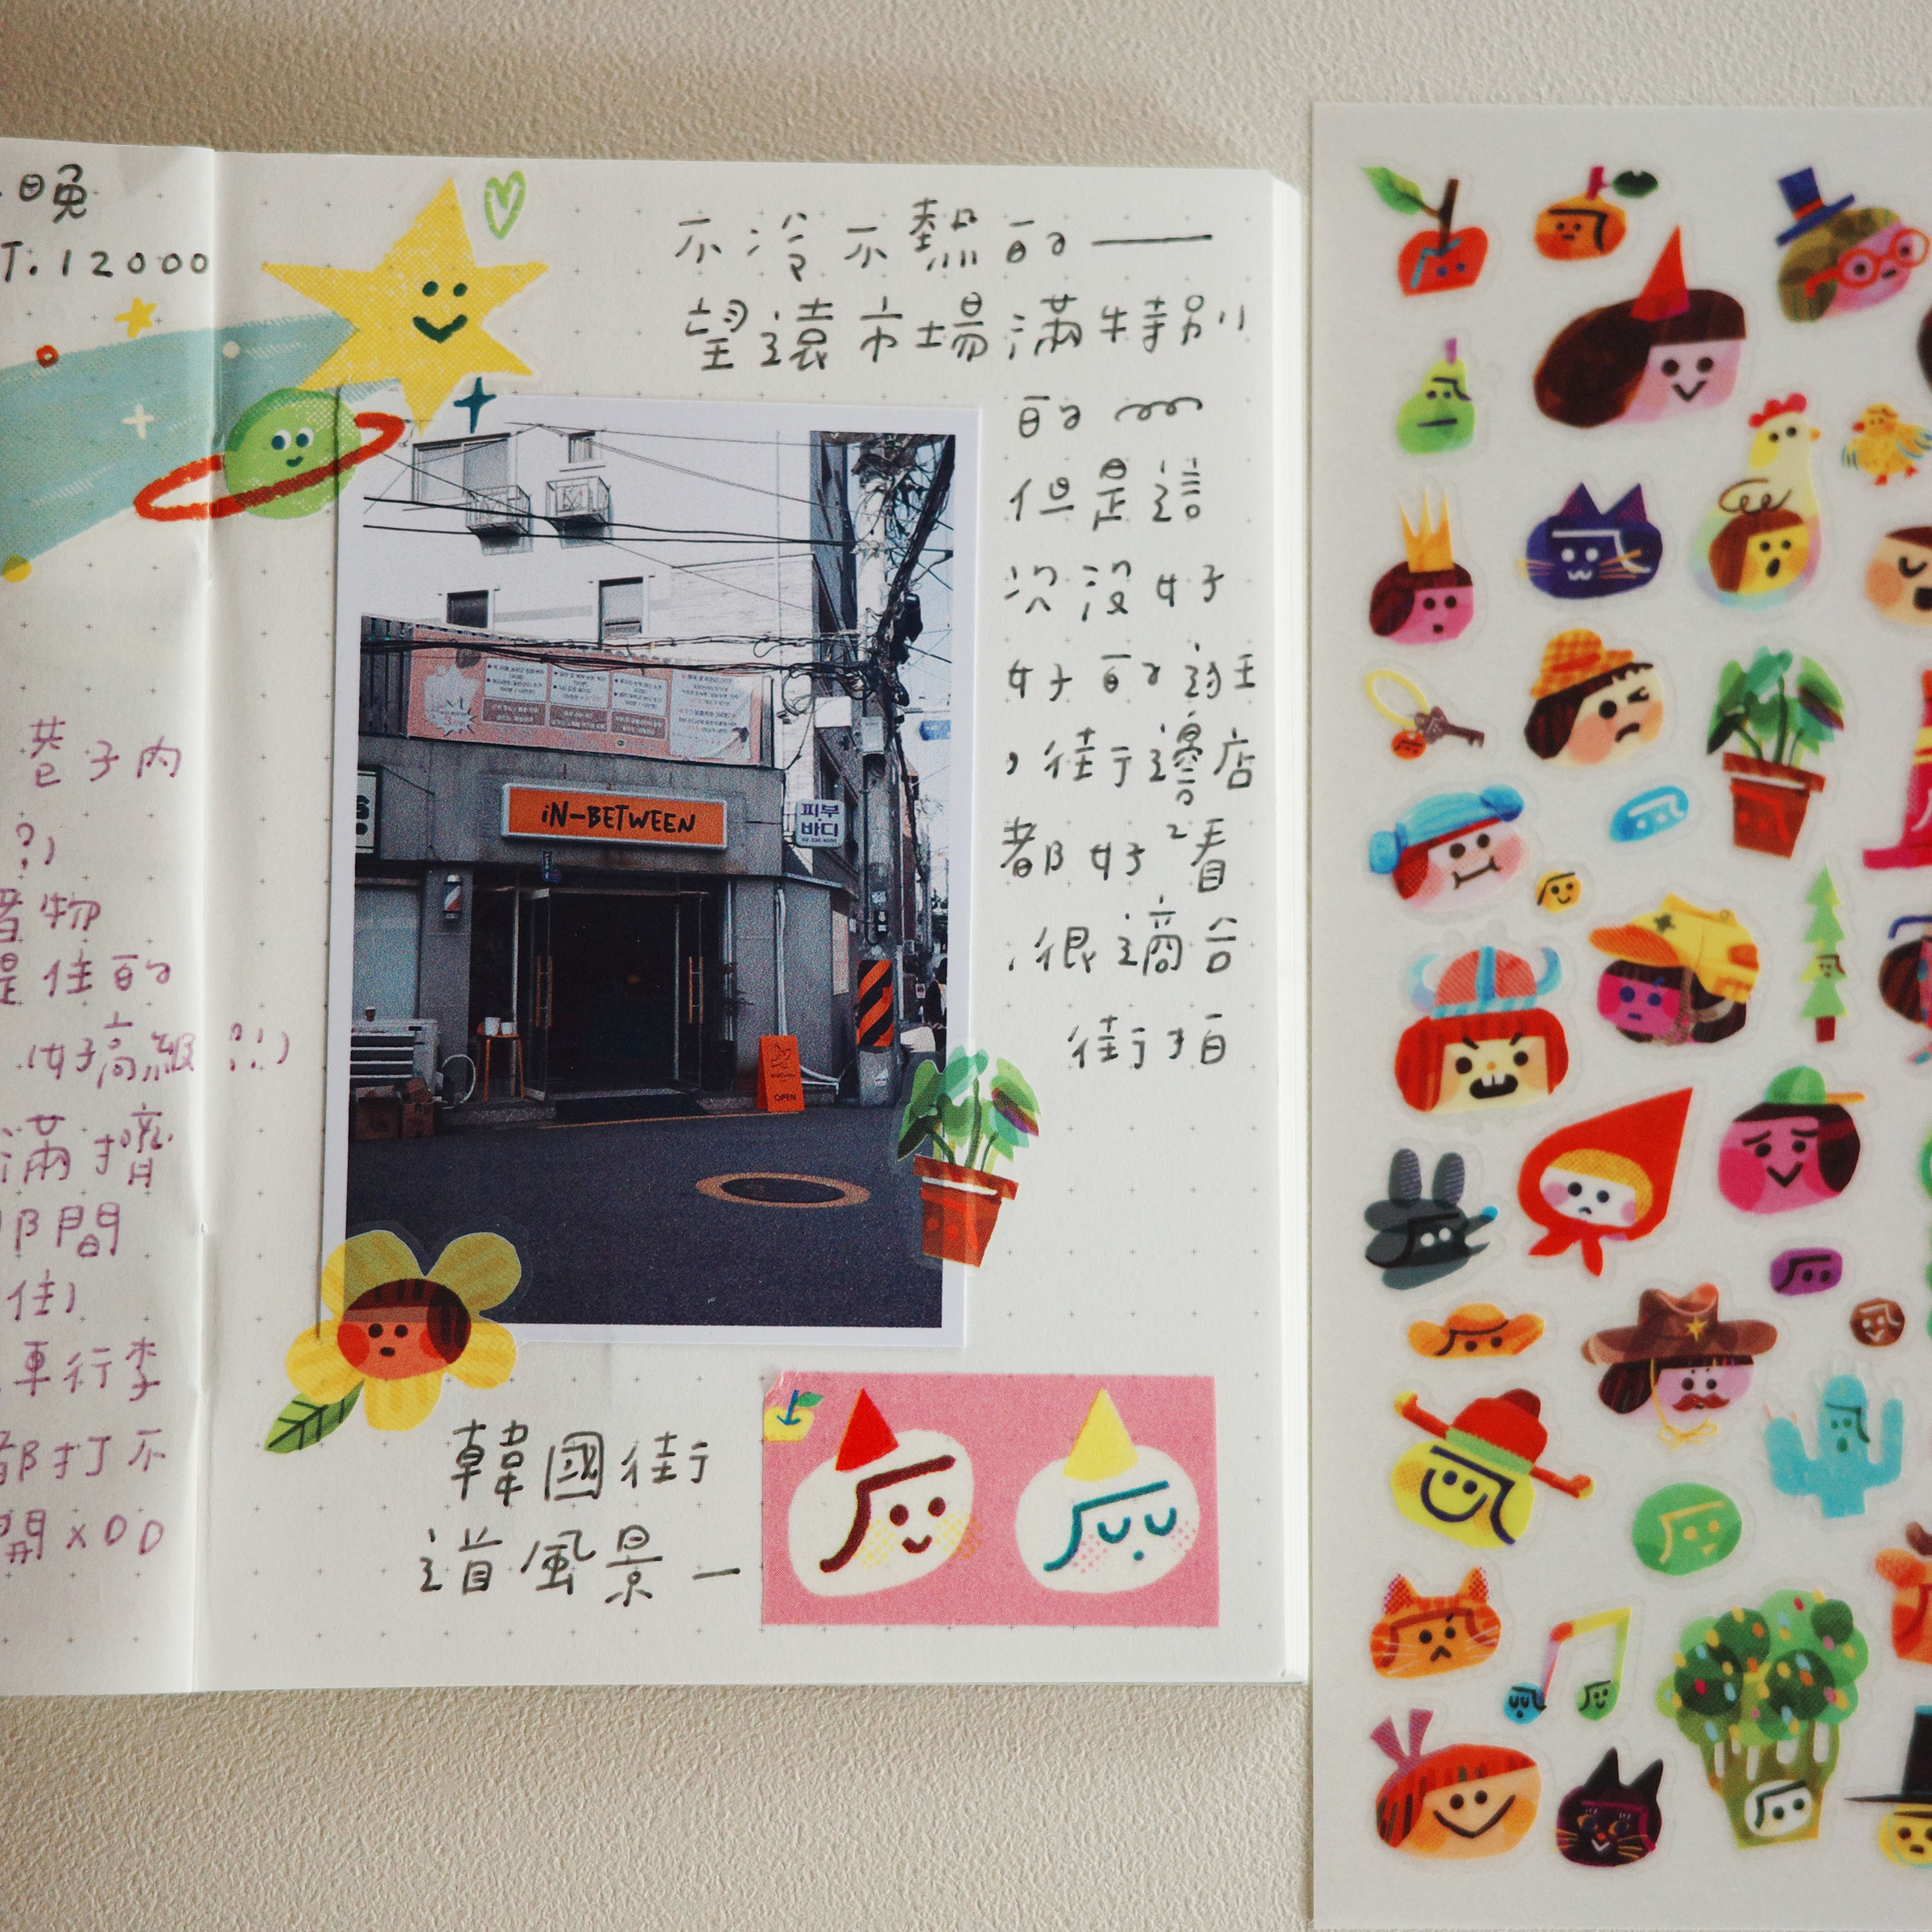 晚
T. 12000
巷子內
?)
物
是住的
(好高級!!)
滿擠
那間
住)
車行李
都打不
開xDD
不冷不熱的——
望遠市場滿特別
的
但是這
次沒好
好的逛
，街邊店
都好²看
.很適合
街拍
iN-BETWEEN
피부
바디
OPEN
韓國街
道風景—